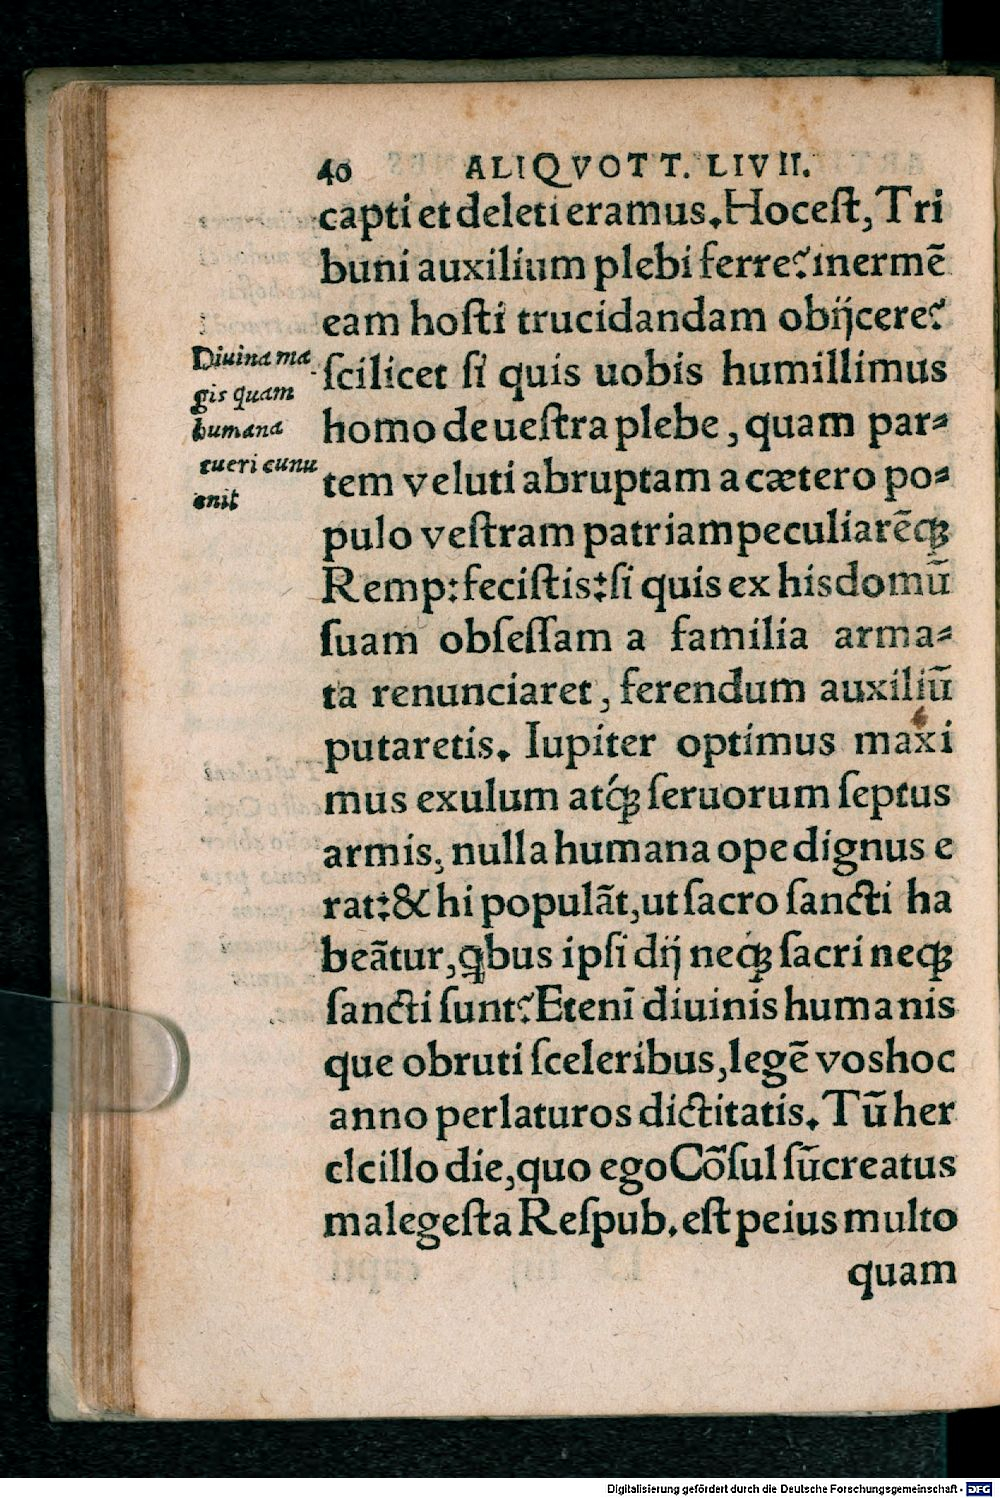 40 ALIQVOT T. LIVII.
capti et deleti eramus. Hoc eſt, Tri
buni auxilium plebi ferre? inermē
eam hoſti trucidandam obijcere?
ſcilicet ſi quis uobis humillimus
homo de ueſtra plebe, quam par⸗
tem veluti abruptam a cætero po⸗
pulo veſtram patriam peculiarēqꝫ
Remp: feciſtis: ſi quis ex his domū
ſuam obſeſſam a familia arma⸗
ta renunciaret, ferendum auxiliū
putaretis. Iupiter optimus maxi
mus exulum atqꝫ́ ſeruorum ſeptus
armis, nulla humana ope dignus e
rat: & hi populāt, ut ſacro ſancti ha
beātur, ꝗbus ipſi dij neqꝫ ſacri neqꝫ
ſancti ſunt? Etenī diuinis humanis
que obruti ſceleribus, legē vos hoc
anno perlaturos dictitatis. Tū her
cle illo die, quo ego Cōſul ſū creatus
male geſta Reſpub. eſt peius multo
quam
Diuina ma
gis quam
humana
tueri cunu
enit
Digitalisierung gefördert durch die Deutsche Forschungsgemeinschaft - DFG